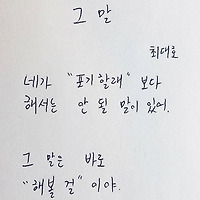 그 말
최대호
네가 "포기할래" 보다
해서는 안 될 말이 있어.
그 말은 바로
"해볼 걸" 이야.